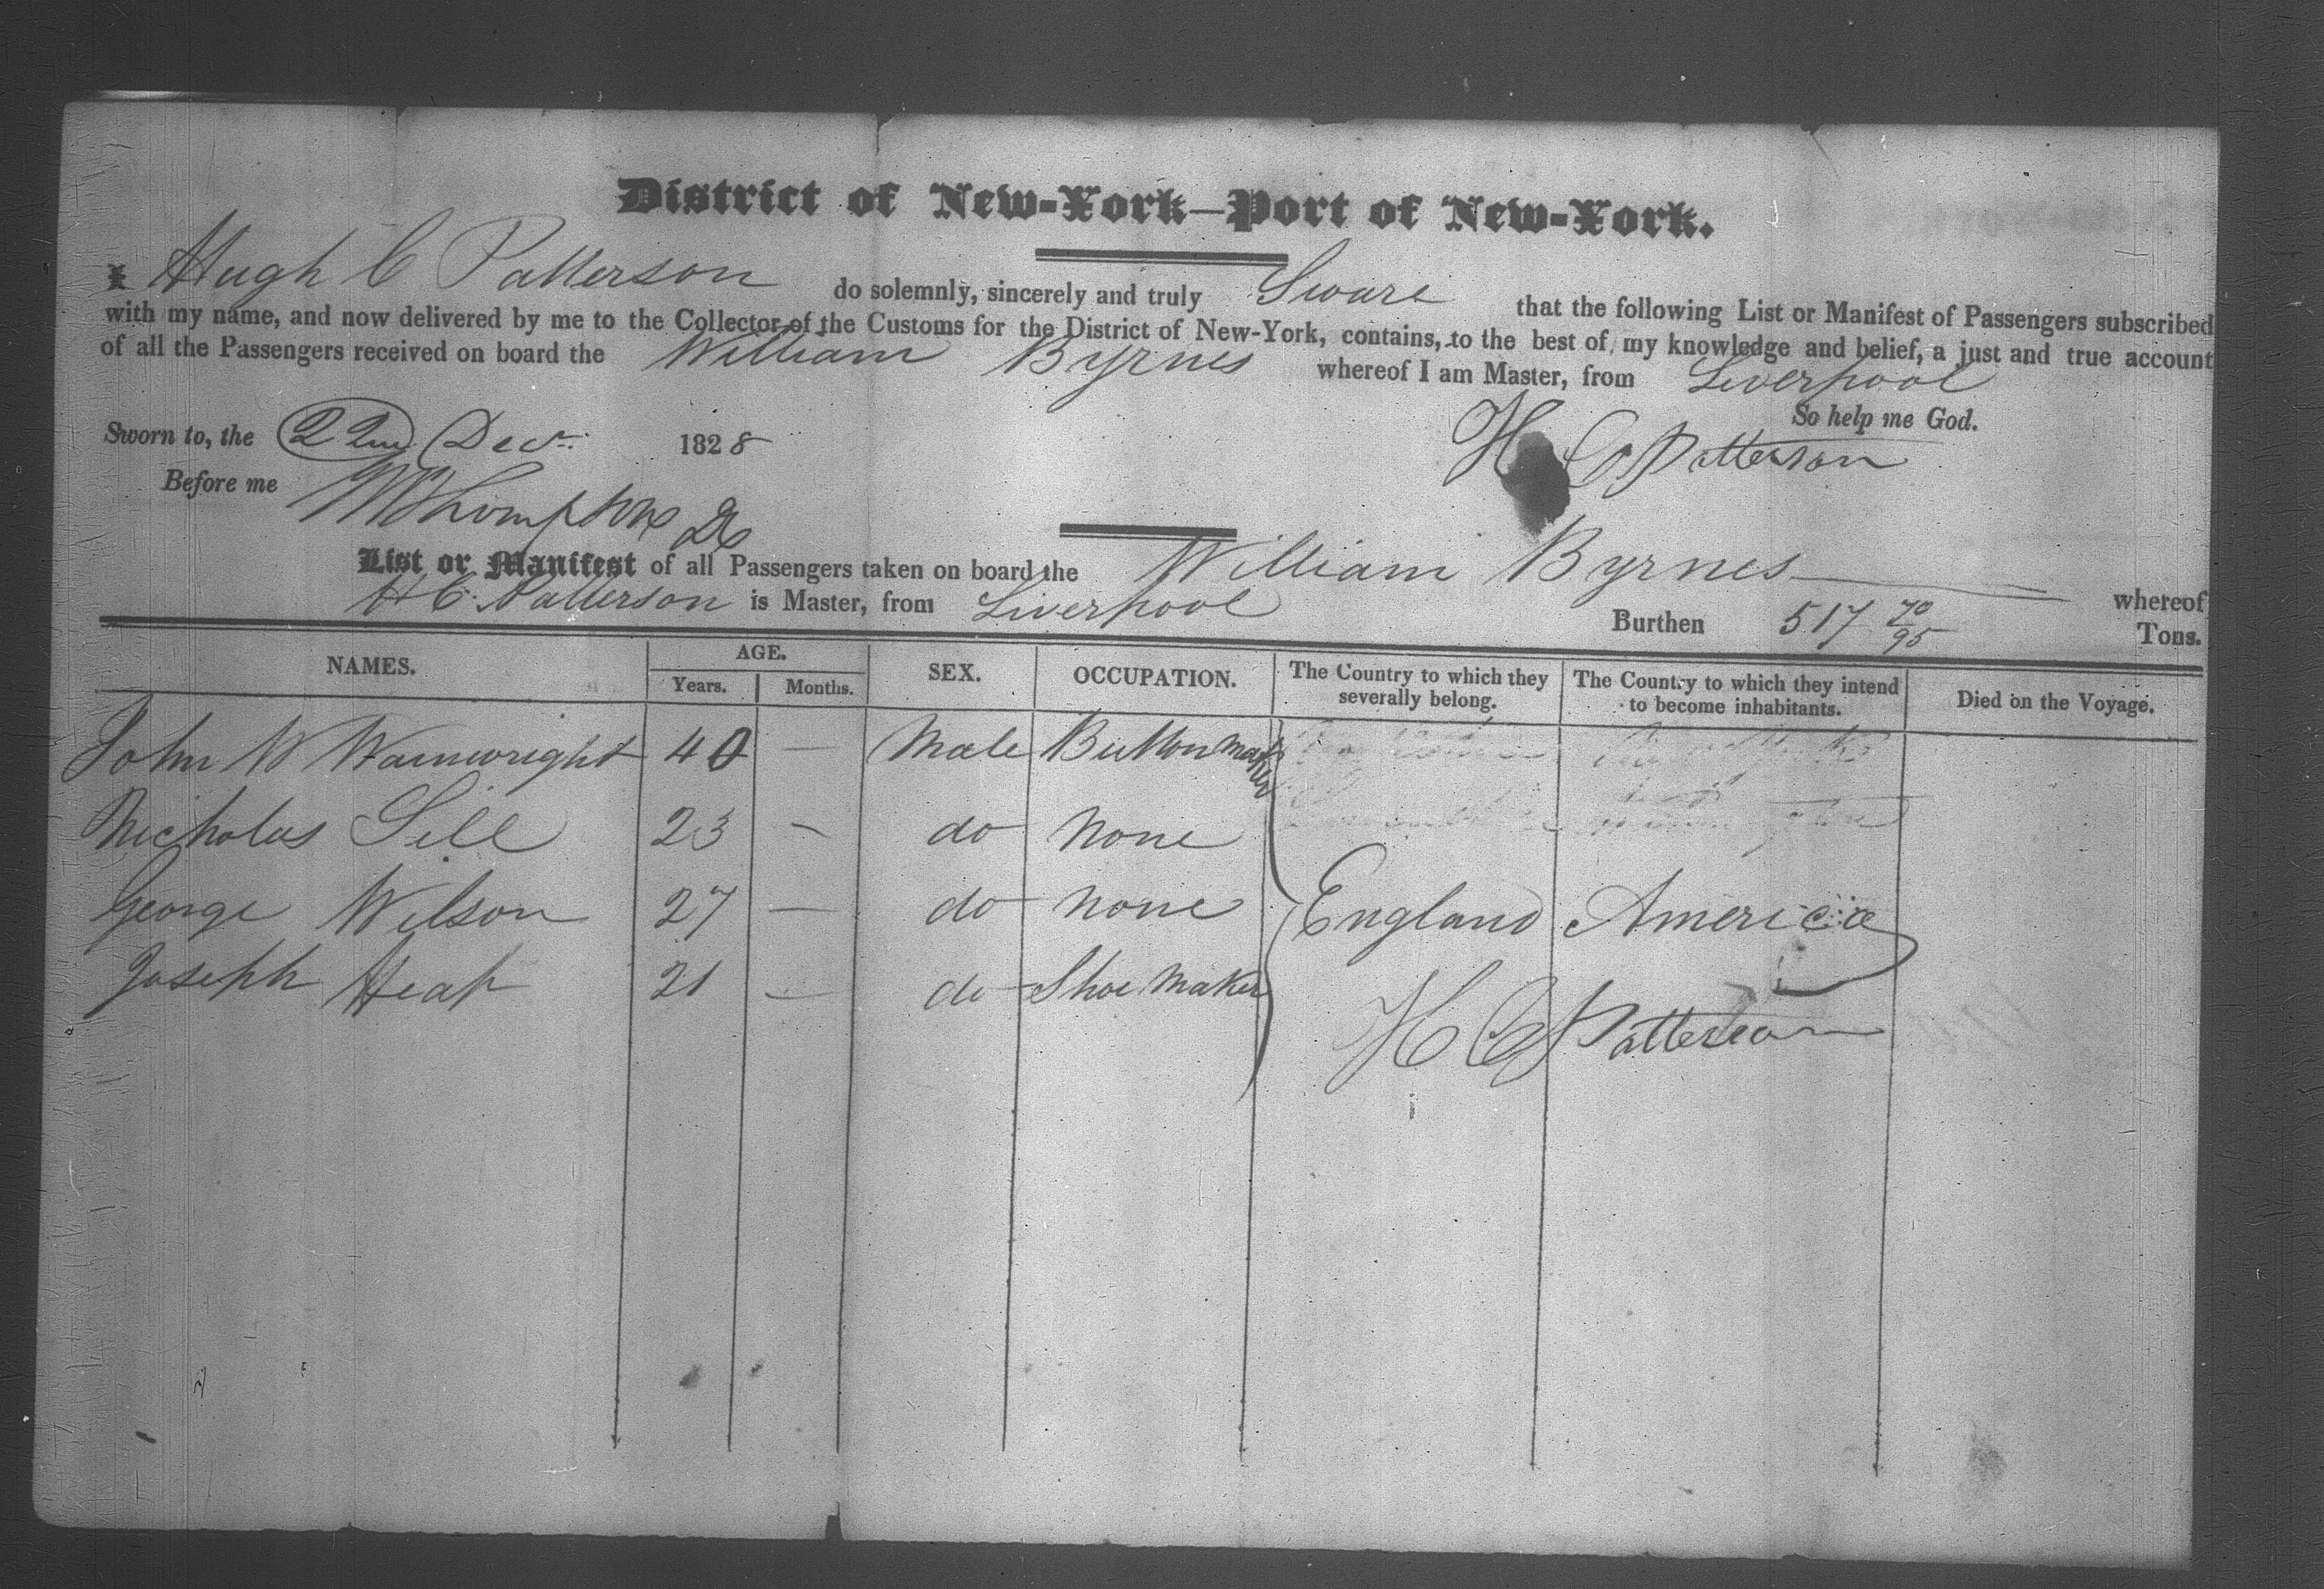 District of New-York—Port of New-York.
I Hugh C Patterson do solemnly, sincerely and truly Sware that the following List or Manifest of Passengers subscribed
with my name, and now delivered by me to the Collector of the Customs for the District of New-York, contains, to the best of my knowledge and belief, a just and true account
of all the Passengers received on board the William Byrnes whereof I am Master, from Liverpool
So help me God.
Sworn to, the 22nd Decr. 1828
H C Patterson
Before me W Thompson
List or Manifest of all Passengers taken on board the William Byrnes whereof
H C. Patterson is Master, from Liverpool Burthen 517 70/95 Tons.
NAMES. AGE. SEX. OCCUPATION. The Country to which they severally belong. The Country to which they intend to become inhabitants. Died on the Voyage.
Years. Months.
John W Wainwright 40 — Male Button maker
Nicholas Sill 23 — do none
George Wilson 27 — do none England America
Joseph Heap 21 — do Shoe Maker
H C Patterson